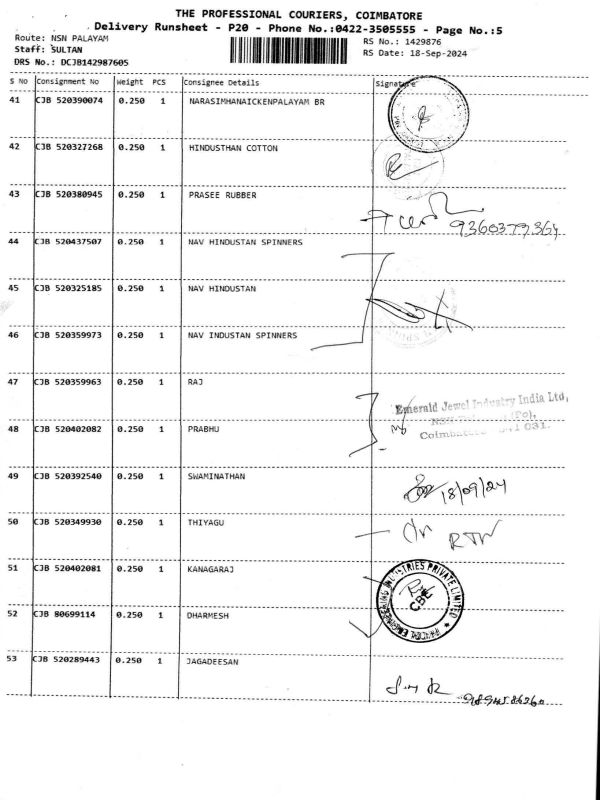 THE PROFESSIONAL COURIERS, COIMBATORE
Delivery Runsheet - P20 - Phone No.:0422-3505555 - Page No.:5
Route: NSN PALAYAM
RS No.: 1429876
Staff: SULTAN
RS Date: 18-Sep-2024
DRS No.: DCJB142987605
S No Consignment No Weight PCS Consignee Details Signature
41 CJB 520390074 0.250 1 NARASIMHANAICKENPALAYAM BR
42 CJB 520327268 0.250 1 HINDUSTHAN COTTON
43 CJB 520380945 0.250 1 PRASEE RUBBER
9360379364
44 CJB 520437507 0.250 1 NAV HINDUSTAN SPINNERS
45 CJB 520325185 0.250 1 NAV HINDUSTAN
46 CJB 520359973 0.250 1 NAV INDUSTAN SPINNERS
47 CJB 520359963 0.250 1 RAJ
Emerald Jewel Industry India Ltd,
48 CJB 520402082 0.250 1 PRABHU
49 CJB 520392540 0.250 1 SWAMINATHAN
18/09/24
50 CJB 520349930 0.250 1 THIYAGU
RTN
51 CJB 520402081 0.250 1 KANAGARAJ
52 CJB 80699114 0.250 1 DHARMESH
53 CJB 520289443 0.250 1 JAGADEESAN